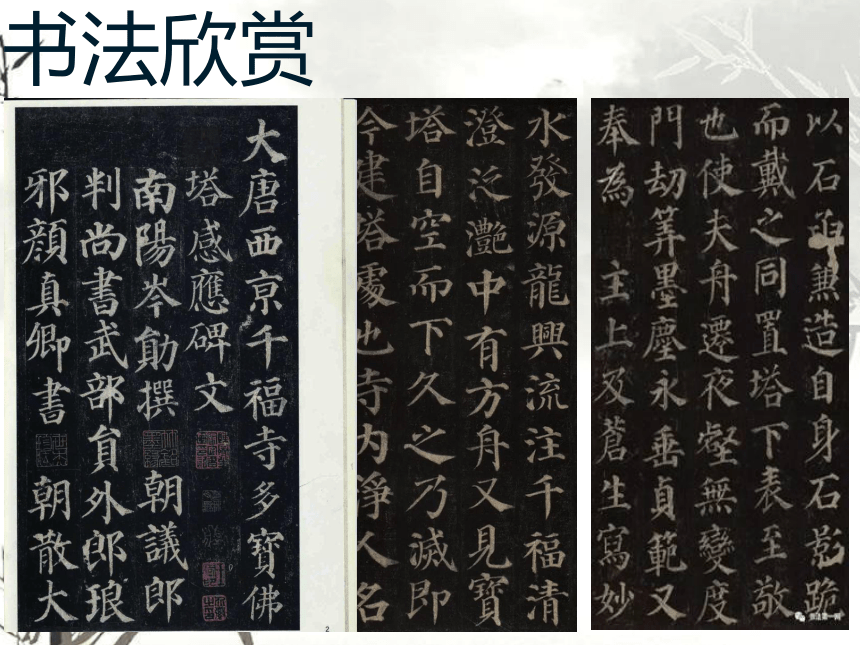 书法欣赏
大唐西京千福寺多寶佛
塔感應碑文
南陽岑勛撰 朝議郎
判尚書武部員外郎琅
邪顏真卿書 朝散大
水發源龍興流注千福清
澄泛灩中有方舟又見寶
塔自空而下久之乃滅即
今建塔處也寺内淨人名
以石函兼造自身石影跪
而戴之同置塔下表至敬
也使夫舟遷夜壑無變度
門劫筭墨塵永垂貞範又
奉為 主上及蒼生寫妙
2
书法第一网